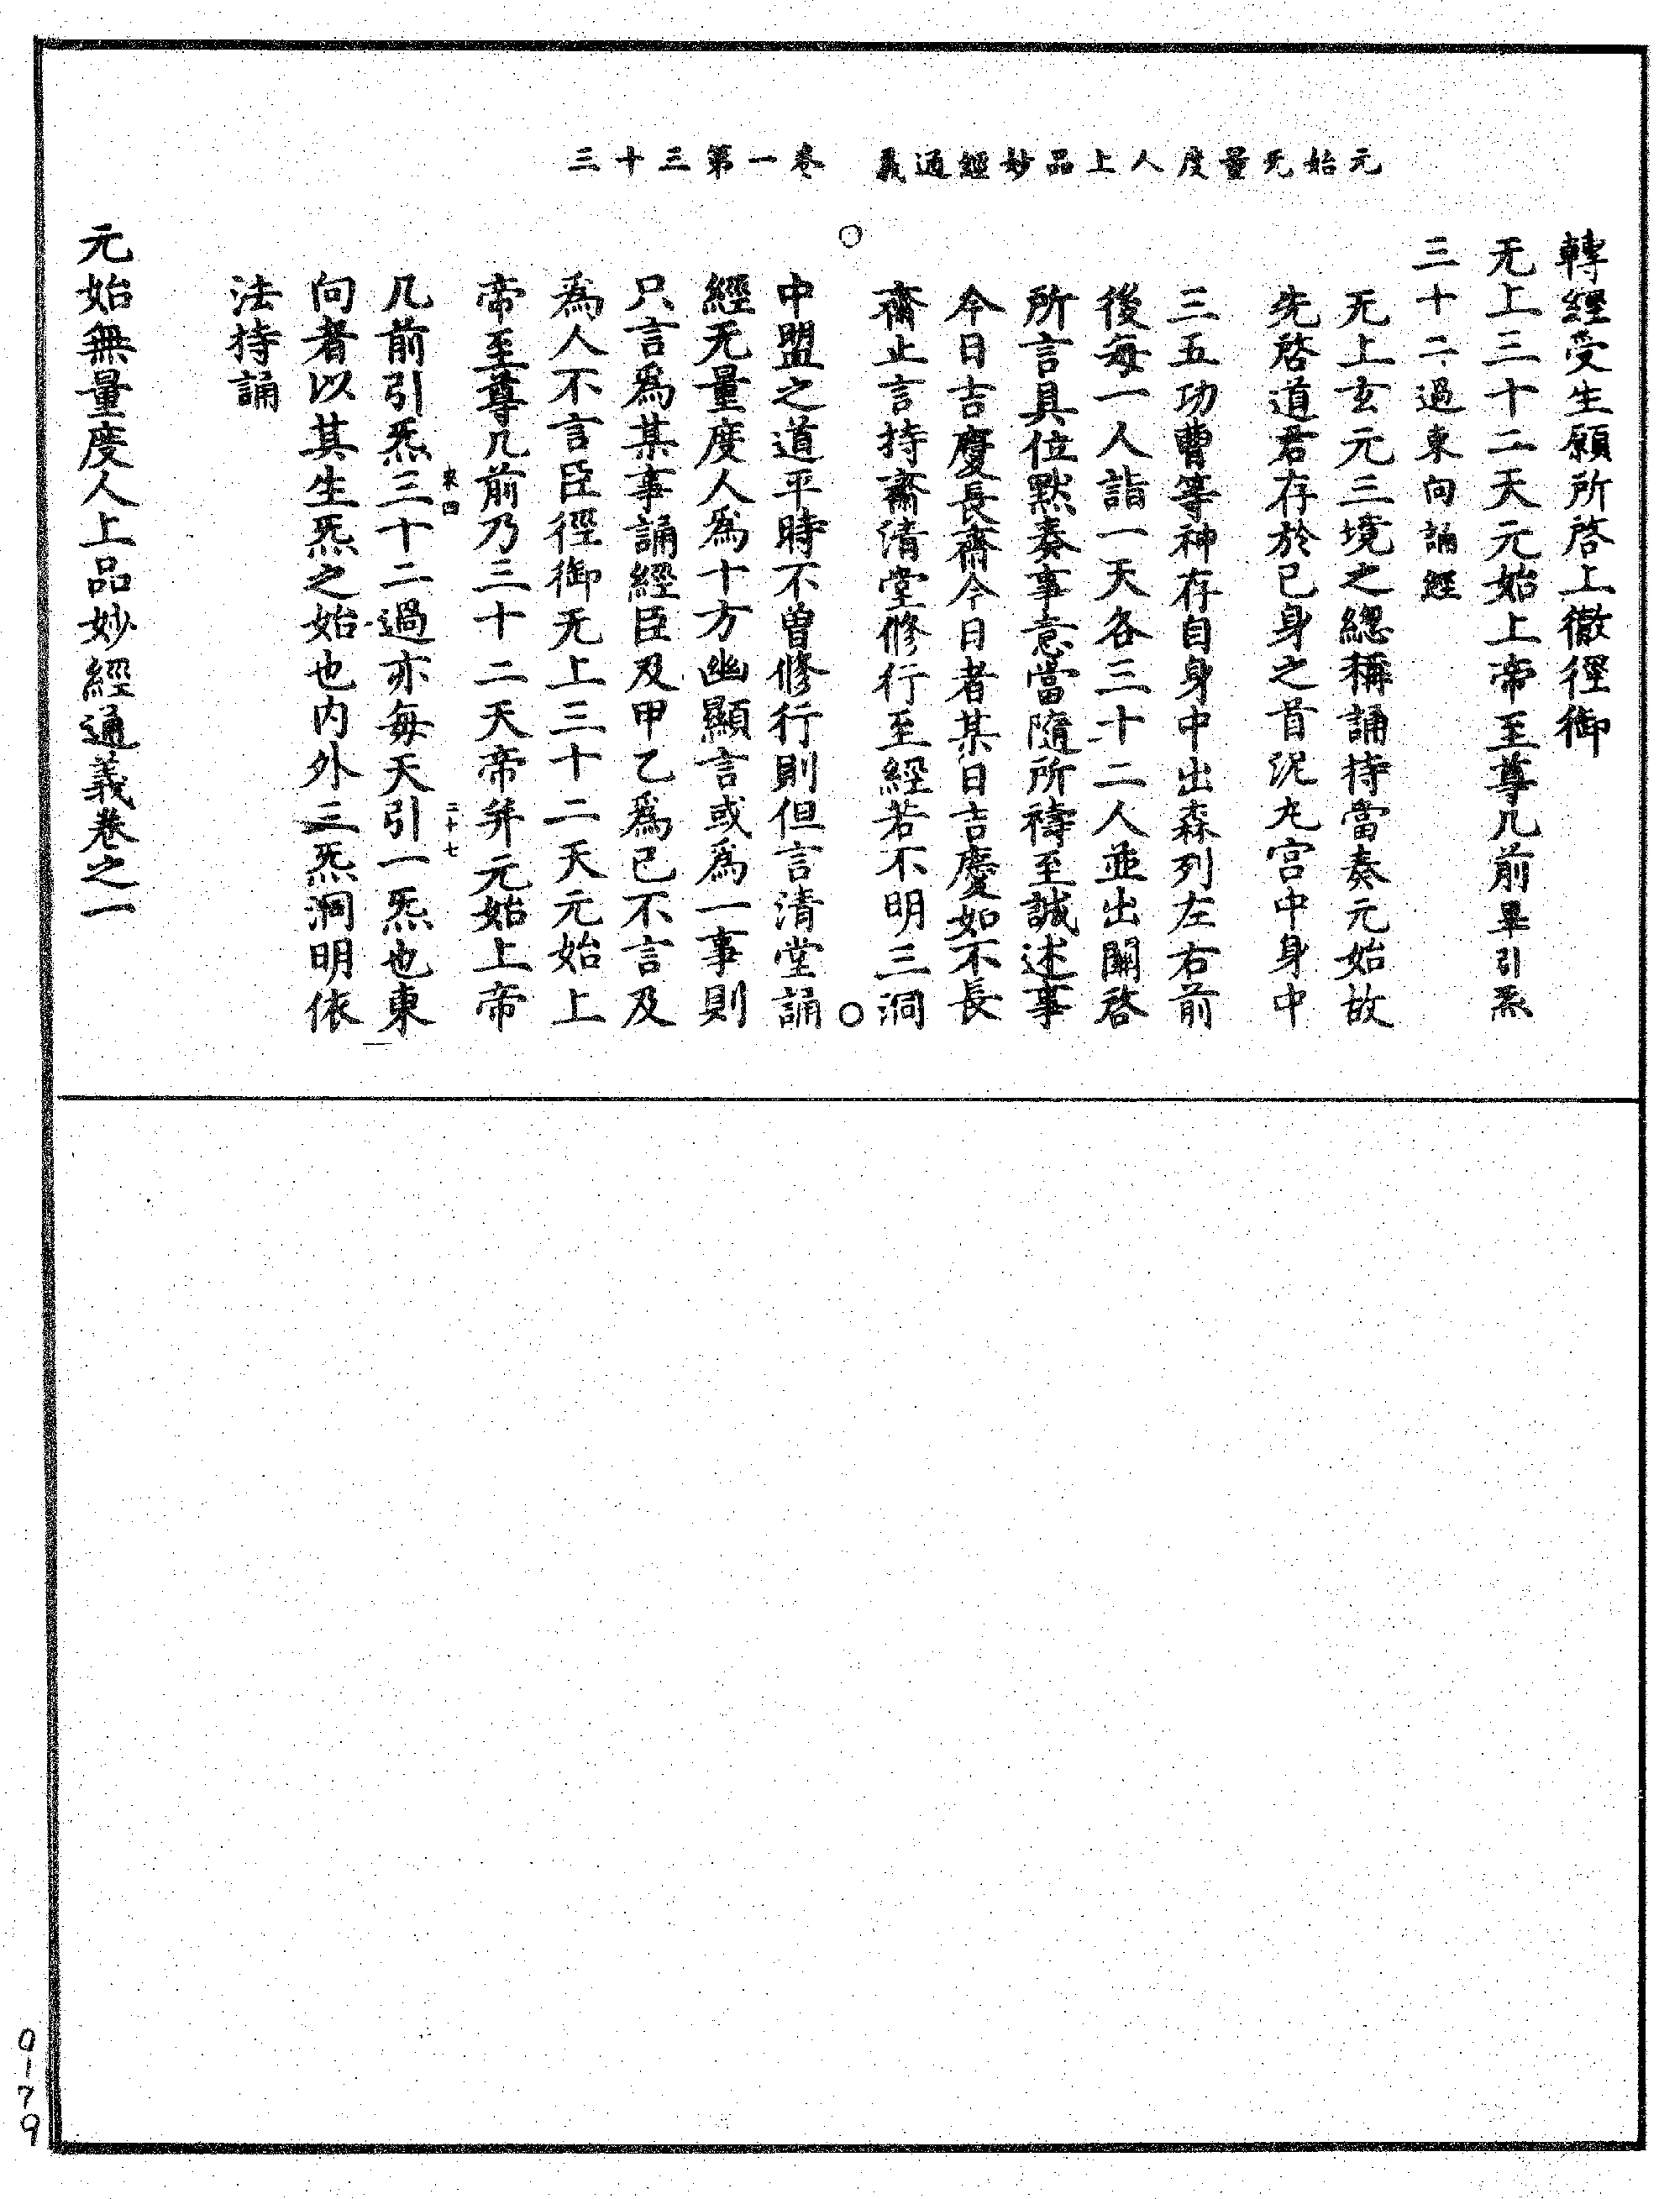 元始无量度人上品妙經通義　卷一第三十三
轉經受生願所啓上徹徑御
无上三十二天元始上帝至尊几前畢引炁
三十二過東向誦經
无上玄元三境之總稱誦持當奏元始故
先啓道君存於己身之首泥丸宫中身中
三五功曹等神存自身中出森列左右前
後每一人詣一天各三十二人並出關啓
所言具位默奏事意當隨所禱至誠述事
今日吉慶長齋今日者某日吉慶如不長
齋止言持齋清堂修行至經若不明三洞
中盟之道平時不曾修行則但言清堂誦
經无量度人爲十方幽顯言或爲一事則
只言爲某事誦經臣及甲乙爲己不言及
爲人不言臣徑御无上三十二天元始上
帝至尊几前乃三十二天帝并元始上帝
來四　二十七
几前引炁三十二過亦每天引一炁也東
向者以其生炁之始也内外三炁洞明依
法持誦
元始無量度人上品妙經通義卷之一
0179